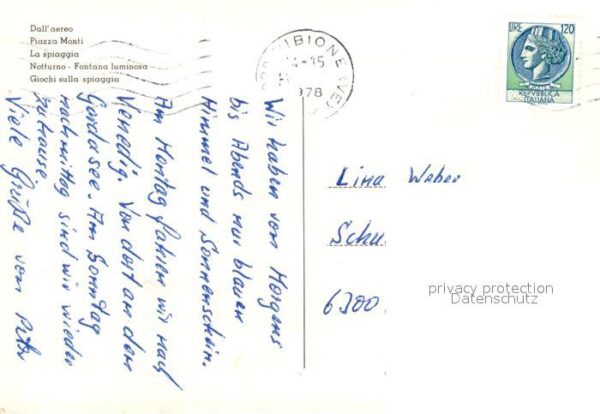 Dall'aereo
Piazza Monti
La spiaggia
Notturno - Fontana luminosa
Giochi sulla spiaggia
BIBIONE (VE)
-15
1978
LIRE 120
REPVBBLICA
ITALIANA
Wir haben von Morgens
bis Abends nur blauen
Himmel und Sonnenschein.
Am Montag fahren wir nach
Venedig. Von dort an den
Gardasee. Am Sonntag
nachmittag sind wir wieder
zuhause.
Viele Grüße von Peter
Lina Weber
Schu
6300
privacy protection
Datenschutz